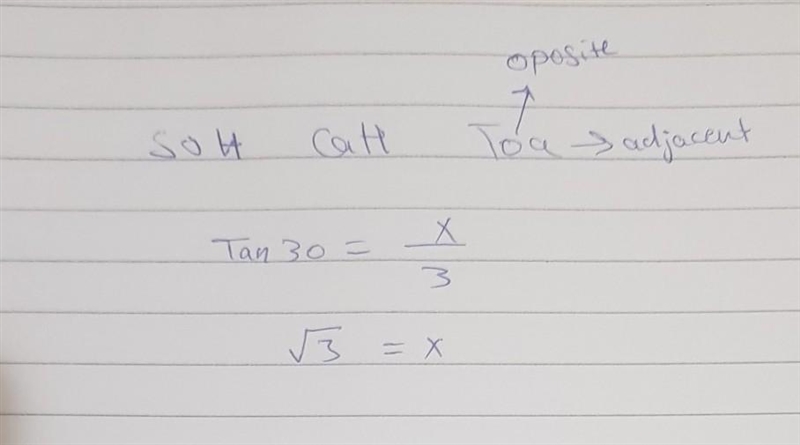 oposite
SOH CaH Toa → adjacent
Tan 30 = x/3
√3 = x